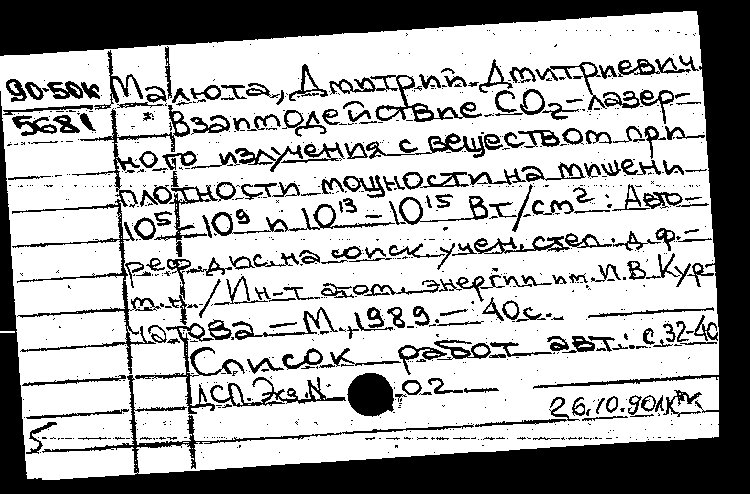 90-50к Малюта, Дмитрий Дмитриевич.
5681 * Взаимодействие CO₂-лазер-
ного излучения с веществом при
плотности мощности на мишени
10⁵-10⁹ и 10¹³-10¹⁵ Вт/cm²: Авто-
реф. дис. на соиск. учен. степ. д.ф.-
т.н./Ин-т атом. энергии им. И.В. Кур-
чатова.-М., 1989.- 40с.
Список работ авт.: с.32-40
ДСП. Экз. N 02
26.10.90
5